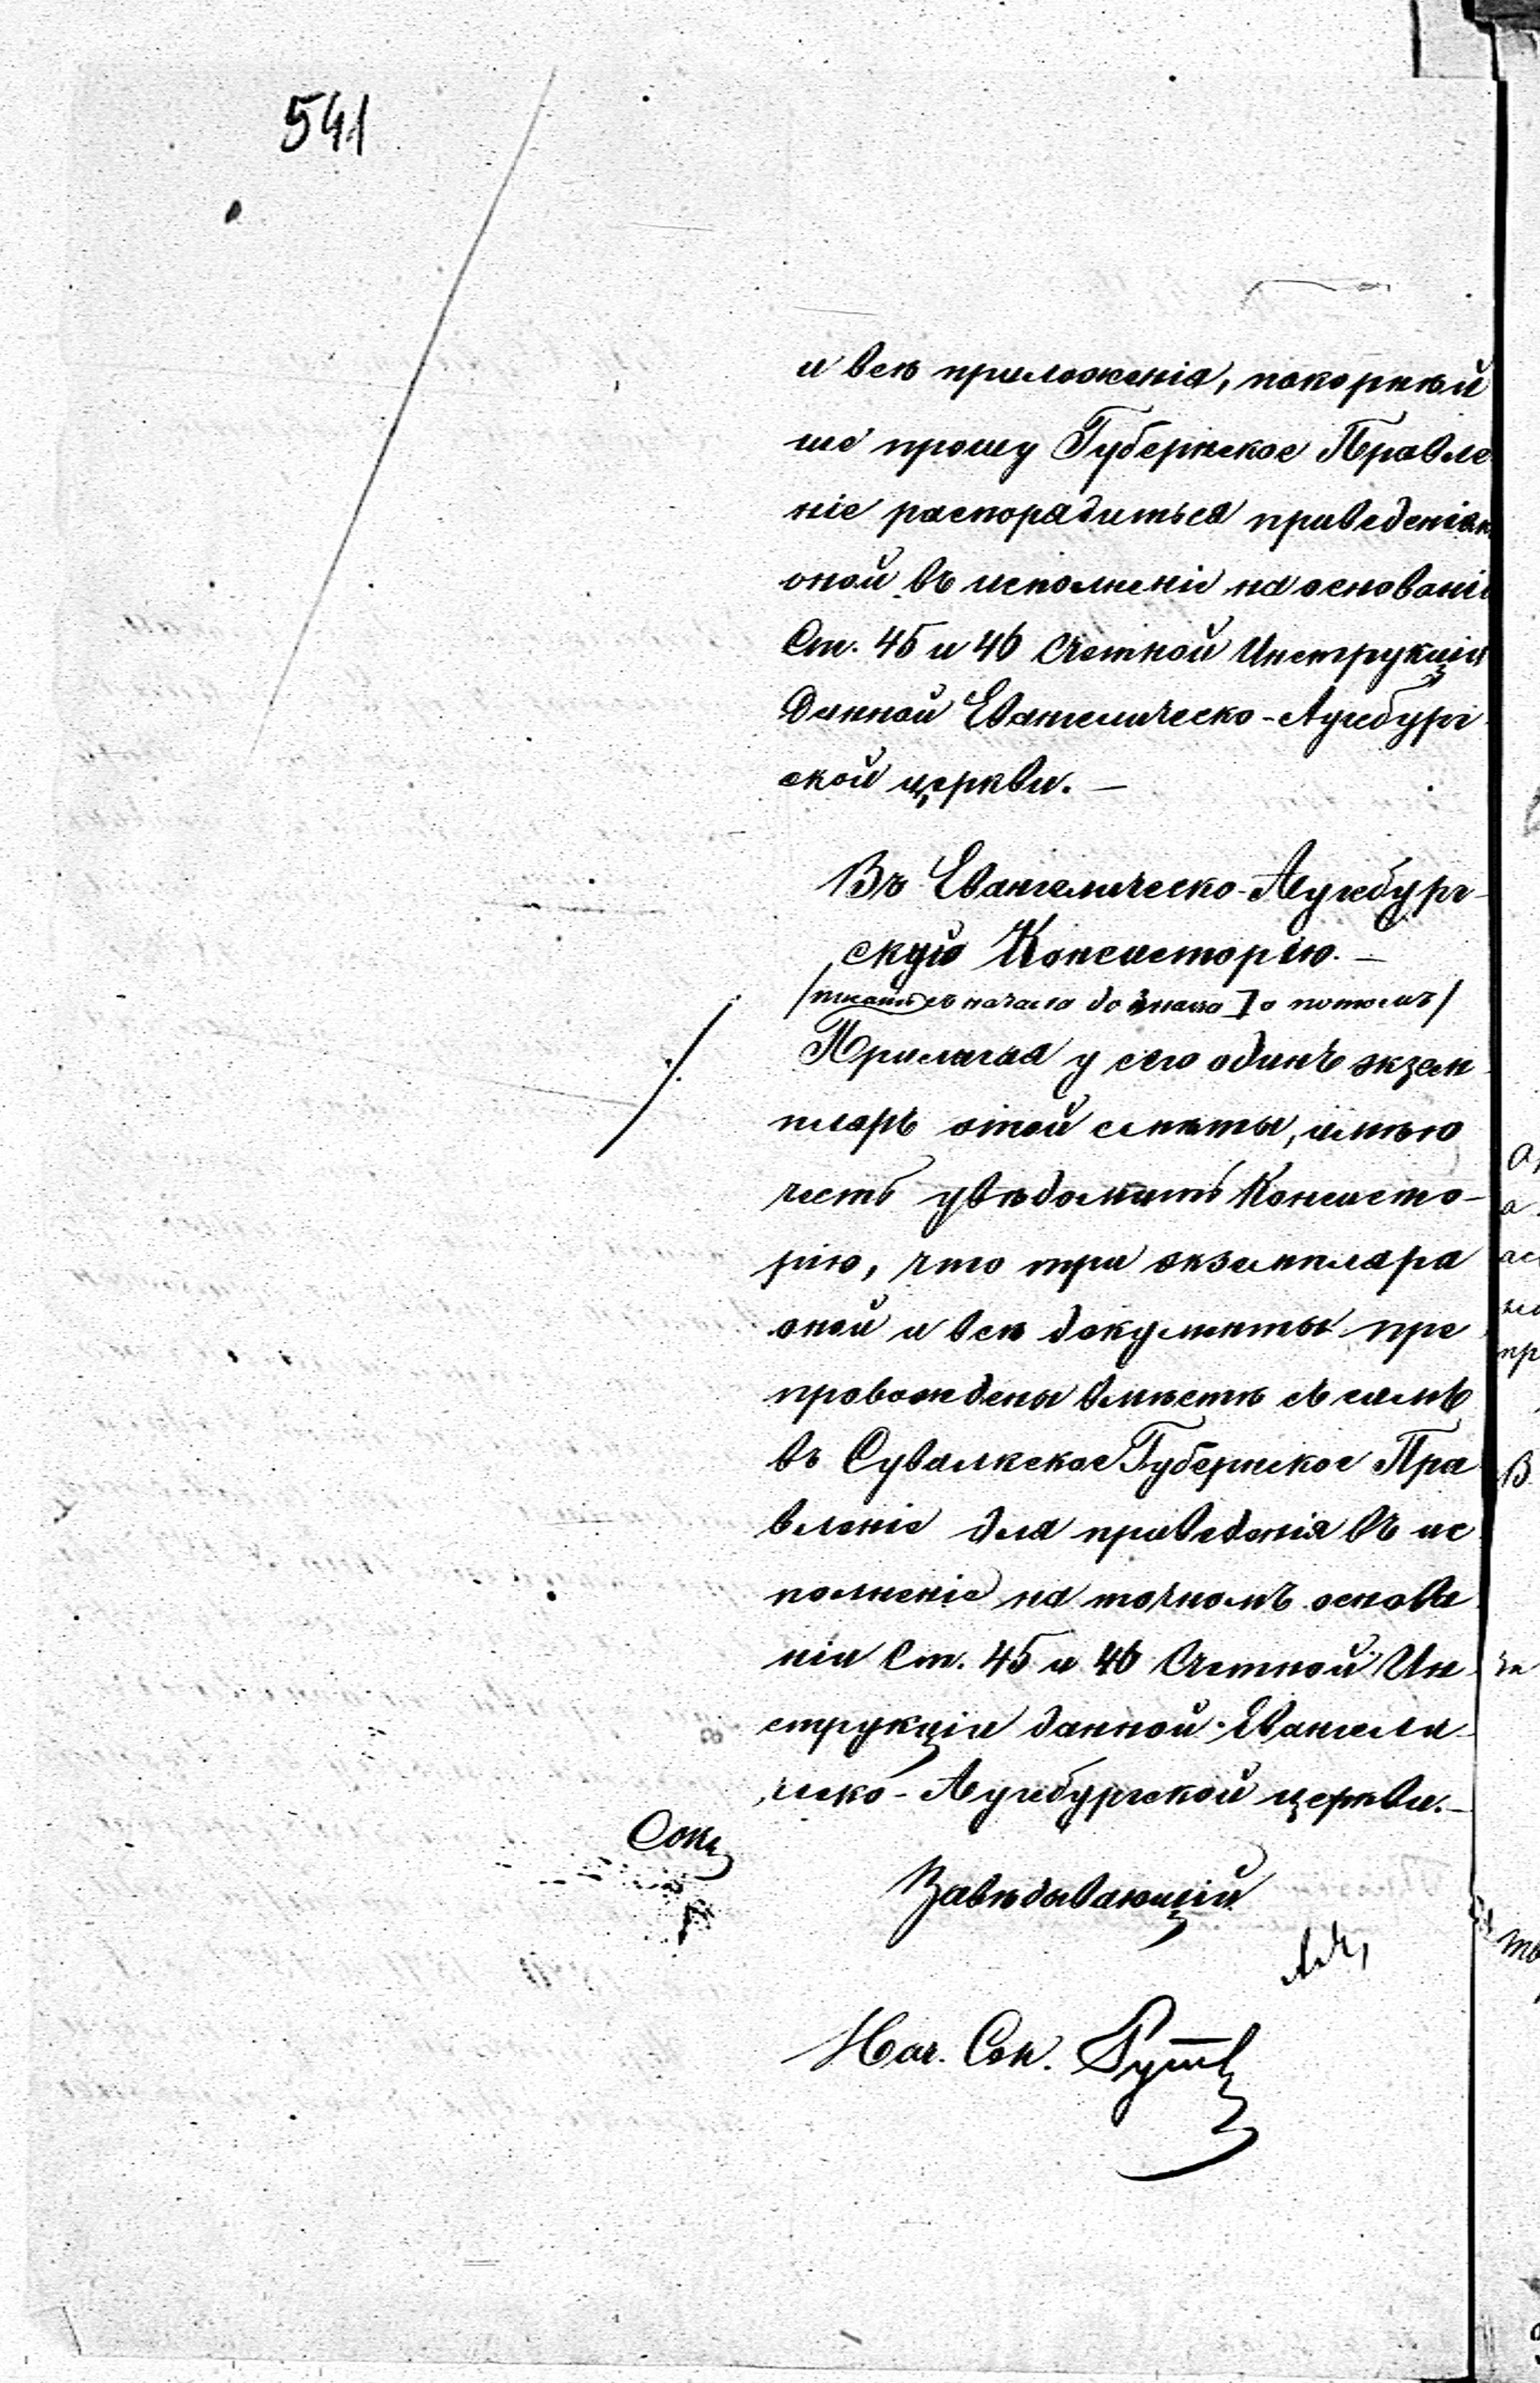 541
и всѣ приложенія, покорнѣй
ше прошу Губернское Правле
ніе распорядиться приведеніем
оной въ исполненіе на основаніи
Ст. 45 и 46 Счетной Инструкціи
данной Евангелическо-Аугсбург
ской церкви. —
Въ Евангелическо-Аугсбург-
скую Консисторію. —
/писать съ начала до знака ] а потомъ/
Прилагая у сего одинъ экзем
пляръ этой смѣты, имѣю
честь увѣдомить Консисто-
рію, что три экземпляра
оной и всѣ документы пре
провождены вмѣстѣ съ симъ
въ Сувалкское Губернское Пра
вленіе для приведенія въ ис
полненіе на точномъ основа
ніи Ст. 45 и 46 Счетной Ин-
струкціи данной Евангели-
ческо-Аугсбургской церкви. —
Завѣдывающій
Нач. Сек.